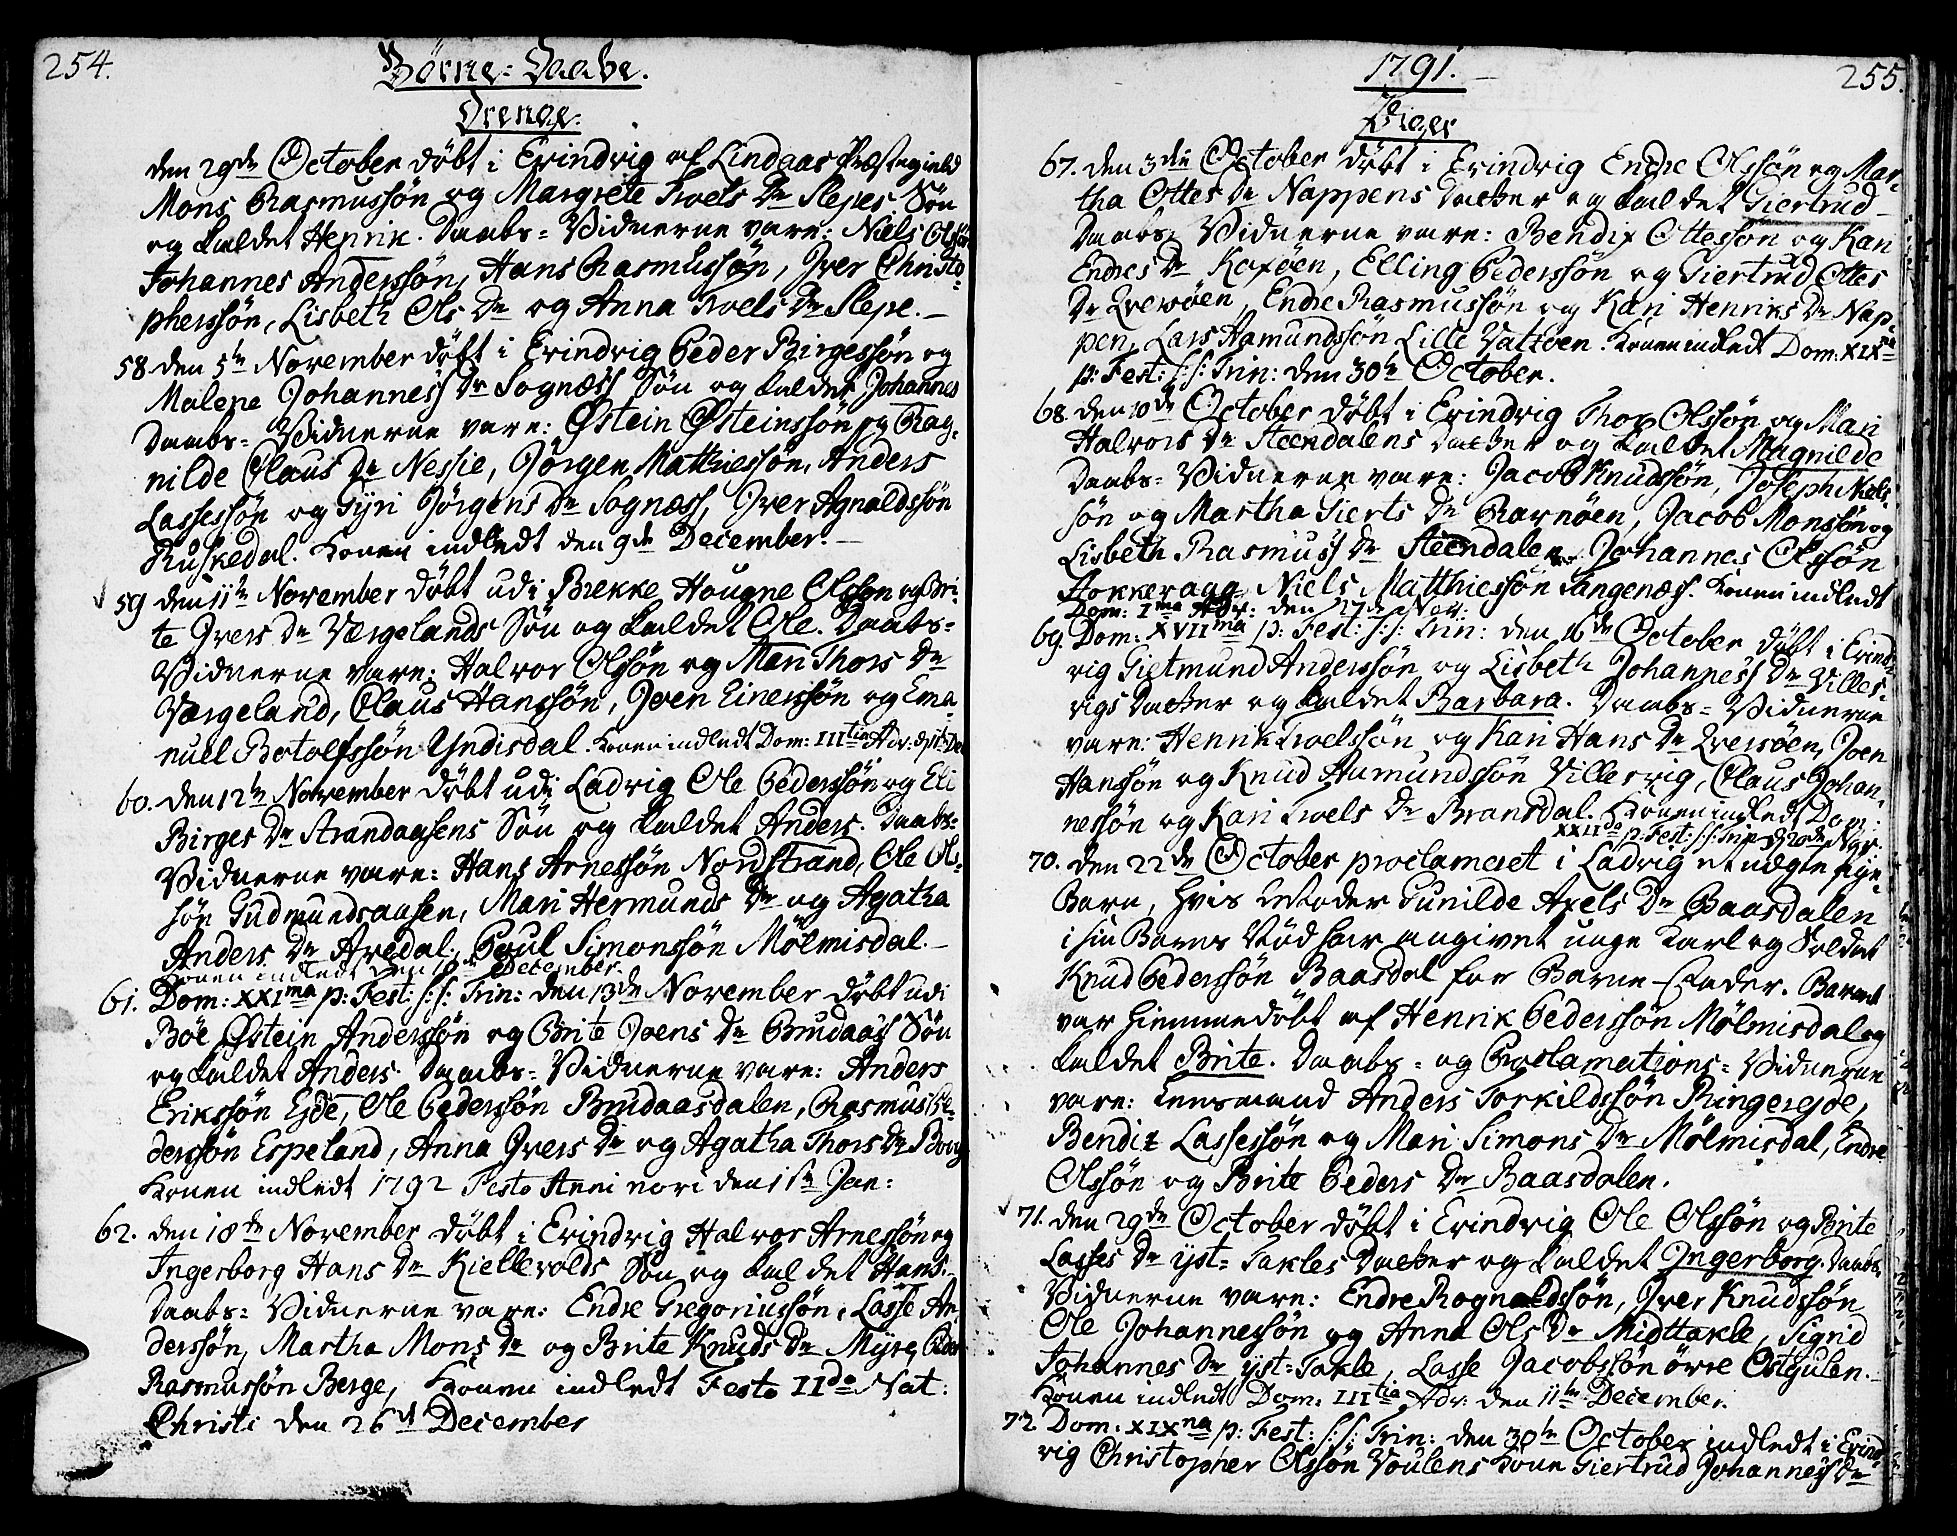 254.
Börne-Daabe.
Drenge.
den 29de October döbt i Evindvig af Lindaas Præstegield
Mons Rasmussön og Margrete Troels Dr Slepes Sön
og kaldet Henrik. Daabs-Vidnerne vare: Niels Olssön
Johannes Anderssön, Hans Rasmussön, Iver Christo-
pherssön, Lisbeth Ols Dr og Anna Troels Dr Slepe.
58 den 5te November döbt i Evindvig Peder Birgessön og
Malene Johanness Dr Sognæss Sön og kaldet Johannes
Daabs-Vidnerne vare: Østein Østeinssön og Rag-
nilde Claus Dr Nessie, Jörgen Matthiessön, Anders
Lassessön og Gÿri Jörgens Dr Sognæss, Iver Agnaldssön
Ruskedal. Konen indledt den 9de December.
59 den 11te November döbt udi Brekke Hougne Olssön og Bri-
te Ivers Dr Værgelands Sön og kaldet Ole. Daabs-
Vidnerne vare: Halvor Olssön og Mari Thors Dr
Værgeland, Claus Hanssön, Joen Einerssön og Ema-
nuel Botolfssön Yndisdal. Konen indledt Dom: IIItia Adv: d. 11te Dec
60. den 12te November döbt udi Ladvig Ole Pederssön og Eli
Birges Dr Strandaasens Sön og kaldet Anders. Daabs-
Vidnerne vare: Hans Arnessön Nordstrand, Ole Ols-
sön Gudmundsaasen, Mari Hermunds Dr og Agatha
Anders Dr Avedal, Poul Simonssön Mölmisdal.
Konen indledt den December.
61. Dom: XXIma p: Fest: S:S: Trin: den 13de November döbt udi
Böe Østein Anderssön og Brite Joens Dr Brudaas Sön
og kaldet Anders. Daabs-Vidnerne vare: Anders
Erikssön Eide, Ole Pederssön Brudaasdalen, Rasmus Pe-
derssön Espeland, Anna Ivers Dr og Agatha Thors Dr
Konen indledt 1792 Festo Anni novi den 1ste Jan:
62. den 18de November döbt i Evindvig Halvor Arnessön og
Ingerborg Hans Dr Kiellevolds Sön og kaldet Hans.
Daabs-Vidnerne vare: Endre Gregoriussön, Lasse An-
derssön, Martha Mons Dr og Brite Knuds Dr Mÿre, Peder
Rasmussön Berge, Konen indledt Festo IIdo Nat:
Christi den 26de December
1791.
255.
Piger
67. den 3die October döbt i Evindvig Endre Olssön og Mar-
tha Ottes Dr Nappens Datter og kaldet Giertrud
Daabs-Vidnerne vare: Bendix Ottessön og Kari
Endres Dr Kaxöen, Elling Pederssön og Giertrud Ottes
Dr Qveröen, Endre Rasmussön og Kari Henriks Dr Nap-
pen, Lars Hamundssön Lille Vattöen. Konen indledt Dom: XIXna
p: Fest: S:S: Trin: den 30te October.
68. den 10de October döbt i Evindvig Thor Olssön og Mari
Halvors Dr Steendalens Datter og kaldet Magnilde
Daabs-Vidnerne vare: Jacob Knudssön, Joseph Niels-
sön og Martha Gierts Dr Ravnöen, Jacob Monssön og
Lisbeth Rasmuss Dr Steendalen, Johannes Olssön
Stokkevaag, Niels Matthiessön Sangenæss. Konen indledt
Dom: Ima Adv: den 27de Nov:
69. Dom: XVIIma p: Fest: S:S: Trin: den 16de October döbt i Evind-
vig Gietmund Anderssön og Lisbeth Johanness Dr Villes-
vigs Datter og kaldet Barbara. Daabs-Vidnerne
vare: Henrik Troelssön og Kari Hans Dr Qveröen, Joen
Hanssön og Knud Aamundssön Villesvig, Claus Johan-
nessön og Kari Troels Dr Bransdal. Konen indledt Dom:
XXIIdo p: Fest: S:S: Trin d. 20de Nov.
70. den 22de October proclameret i Ladvig et uægte pige-
Barn, hvis Moder Gunilde Axels Dr Baasdalen
i sin Barns Nöd har angivet unge Karl og Soldat
Knud Pederssön Baasdal for Barne-Fader. Barnet
var hiemmedöbt af Henrik Pederssön Mölmisdal og
kaldet Brite. Daabs- og Proclamations-Vidnerne
vare: Lensmand Anders Torkildssön Ringereide,
Bendix Lassessön og Mari Simons Dr Mölmisdal, Endre
Olssön og Brite Peders Dr Baasdalen.
71. den 29de October döbt i Evindvig Ole Olssön og Brite
Lasses Dr ÿst-Takles Datter og kaldet Ingerborg. Daabs-
Vidnerne vare: Endre Rognaldssön, Iver Knudssön
Ole Johannessön og Anna Ols Dr Midttakle, Sigrid
Johannes Dr ÿst-Takle, Lasse Jacobssön övre Ostgulen.
Konen indledt Dom: IIItia Adv: den 11te December.
72 Dom: XIXna p: Fest: S:S: Trin: den 30te October indledt i Evind-
vig Christopher Olssön Voulens Kone Giertrud Johanness Dr